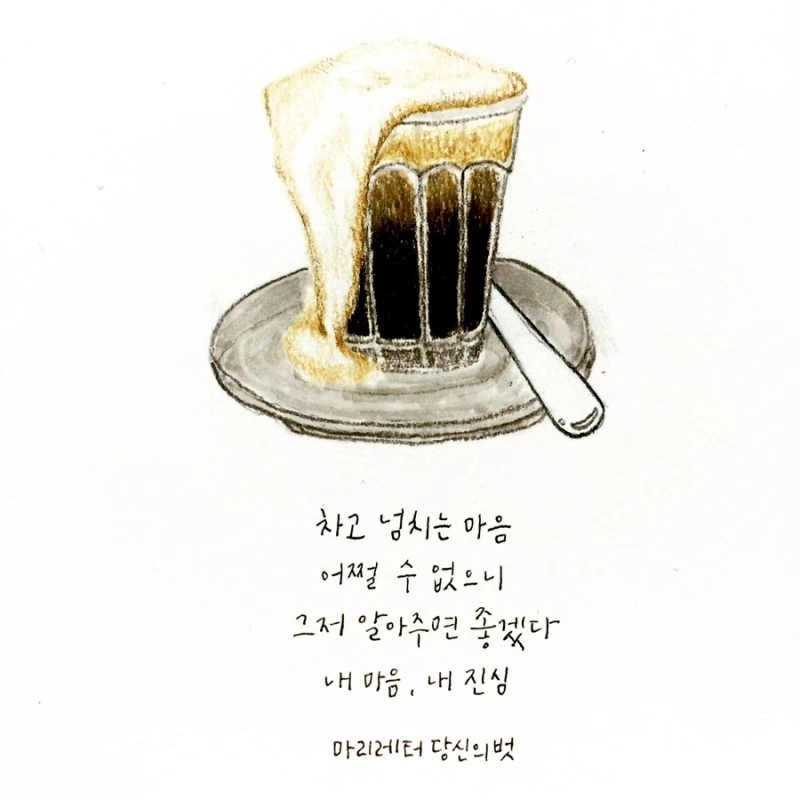 차고 넘치는 마음
어쩔 수 없으니
그저 알아주면 좋겠다
내 마음, 내 진심
마리레터 당신의벗